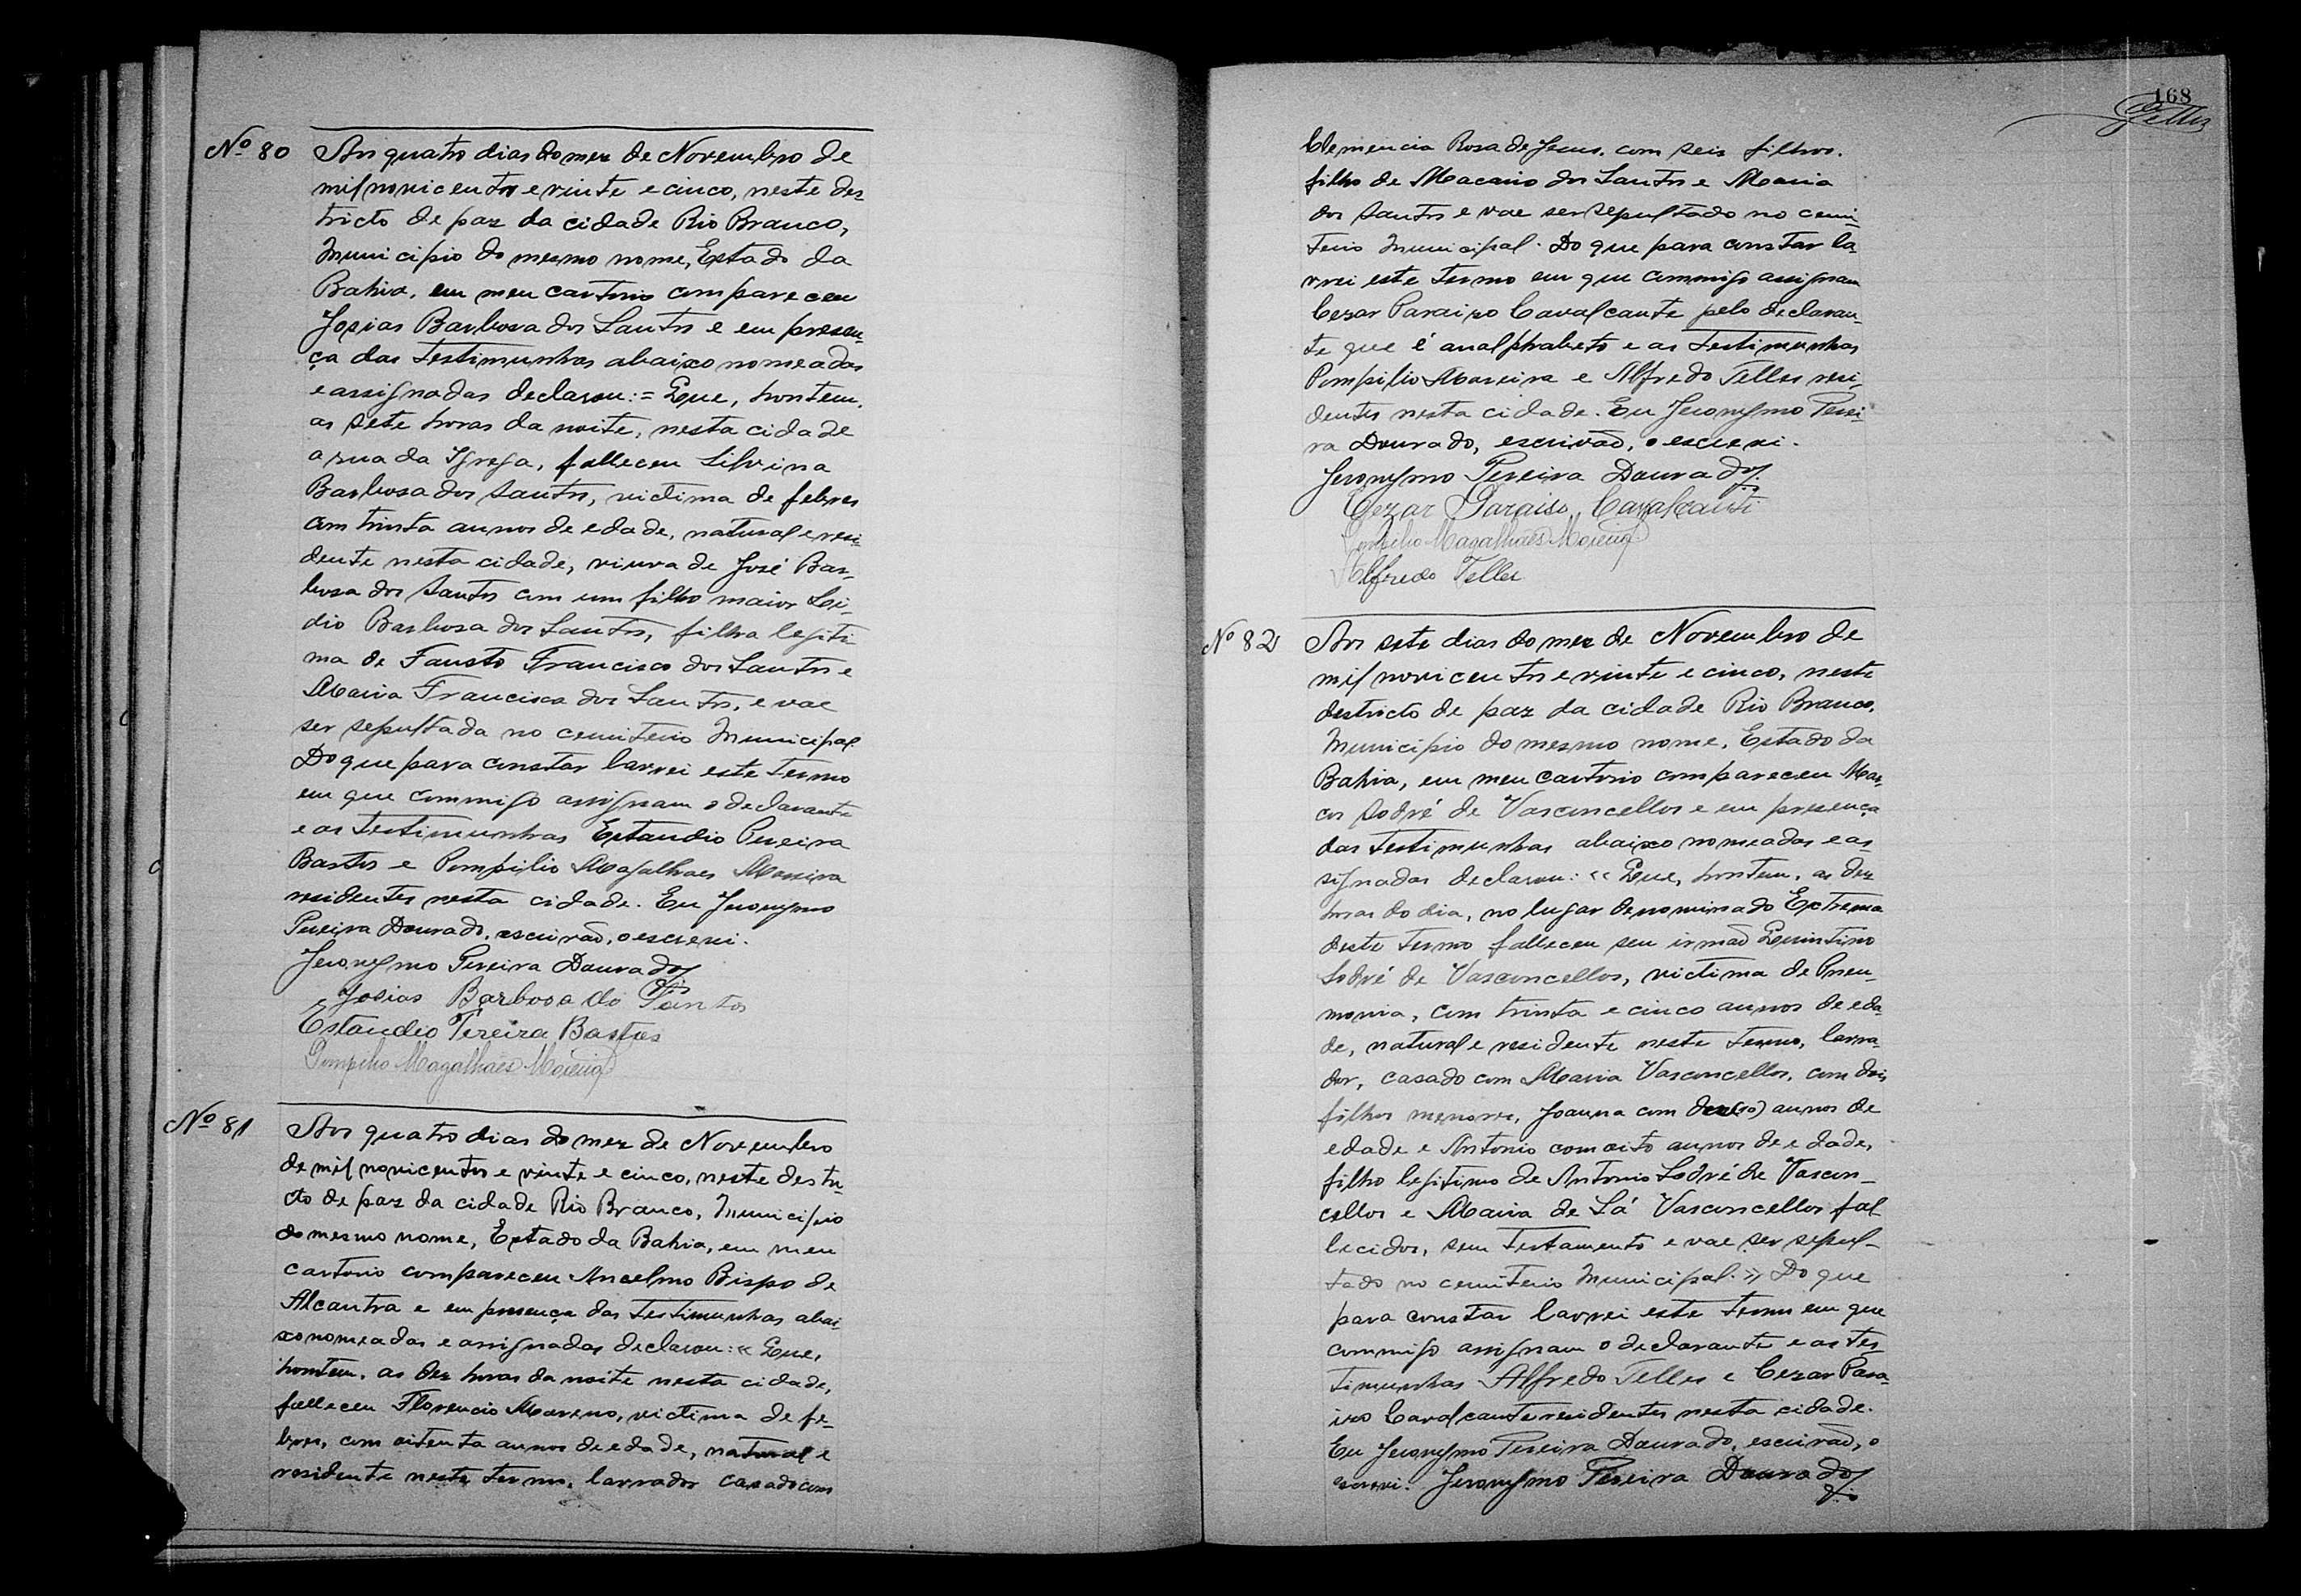 Nº 80
Aos quatro dias do mez de Novembro de
mil novicentos e vinte e cinco, neste des
tricto de paz da cidade Rio Branco,
Municipio do mesmo nome, Estado da
Bahia, em meu cartorio compareceu
Josias Barbosa dos Santos e em presen-
ça das testimunhas abaixo nomeadas
e assignadas declarou: = Que, hontem,
as sete horas da noite, nesta cidade
a rua da Igreja, falleceu Silvina
Barbosa dos Santos, victima de febres
com trinta annos de edade, natural e resi-
dente nesta cidade, viuva de José Bar-
bosa dos Santos com um filho maior
dio Barbosa dos Santos, filha legiti
ma de Fausto Francisco dos Santos e
Maria Francisca dos Santos, e vae
ser sepultada no cemiterio Municipal.
Do que para constar lavrei este termo
em que commigo assignam o declarante
e as testimunhas Estandio Pereira
Bastos e Pompilio Magalhaes Moreira
residentes nesta cidade. Eu Jeronymo
Pereira Dourado, escrivão, o escrevi.
Jeronymo Pereira Dourado
Josias Barbosa do Santos
Estandio Pereira Bastos
Pompilio Magalhães Moreira
Nº 81
Aos quatro dias do mez de Novembro
de mil novicentos e vinte e cinco, neste destri-
cto de paz da cidade Rio Branco, Municipio
do mesmo nome, Estado da Bahia, em meu
cartorio compareceu Ancelmo Bispo de
Alcantra e em presença das testimunhas abai-
xo nomeadas e assignadas declarou: « Que,
hontem, as dez horas da noite nesta cidade,
falleceu Florencio Moreno, victima de fe-
bres, com oitenta annos de edade, natural e
residente neste termo, lavrador casado com
168
Telles
Clemencia Rosa de Jesus, com seis filhos.
filho de Macario dos Santos e Maria
dos Santos e vae ser sepultado no cemi-
terio Municipal. Do que para constar la-
vrei este termo em que commigo assignam
Cezar Paraizo Cavalcante pelo declaran-
te que é analphabeto e as testimunhas
Pompilio Moreira e Alfredo Telles resi-
dentes nesta cidade. Eu Jeronymo Perei-
ra Dourado, escrivão, o escrevi.
Jeronymo Pereira Dourado
Cezar Paraiso Cavalcanti
Pompilio Magalhães Moreira
Alfredo Telles
Nº 82
Aos sete dias do mez de Novembro de
mil novicentos e vinte e cinco, neste
destricto de paz da cidade Rio Branco,
Municipio do mesmo nome, Estado da
Bahia, em meu cartorio compareceu Mar-
cos Sodré de Vasconcellos e em presença
das testimunhas abaixo nomeadas e as-
signadas declarou: « Que, hontem, as dez
horas do dia, no lugar denominado Extrema
deste termo falleceu seu irmão Quintino
Sodré de Vasconcellos, victima de Pneu-
monia, com trinta e cinco annos de eda-
de, natural e residente neste termo, lavra-
dor, casado com Maria Vasconcellos, com dois
filhos menores, Joanna com dez(10) annos de
edade e Antonio com oito annos de edade,
filho legitimo de Antonio Sodré de Vascon-
cellos e Maria de Sá Vasconcellos fal
lecidos, sem testamento e vae ser sepul-
tado no cemiterio Municipal. » Do que
para constar lavrei este termo em que
commigo assignam o declarante e as tes
timunhas Alfredo Telles e Cezar Para-
izo Cavalcante residentes nesta cidade.
Eu Jeronymo Pereira Dourado, escrivão, o
escrevi. Jeronymo Pereira Dourado